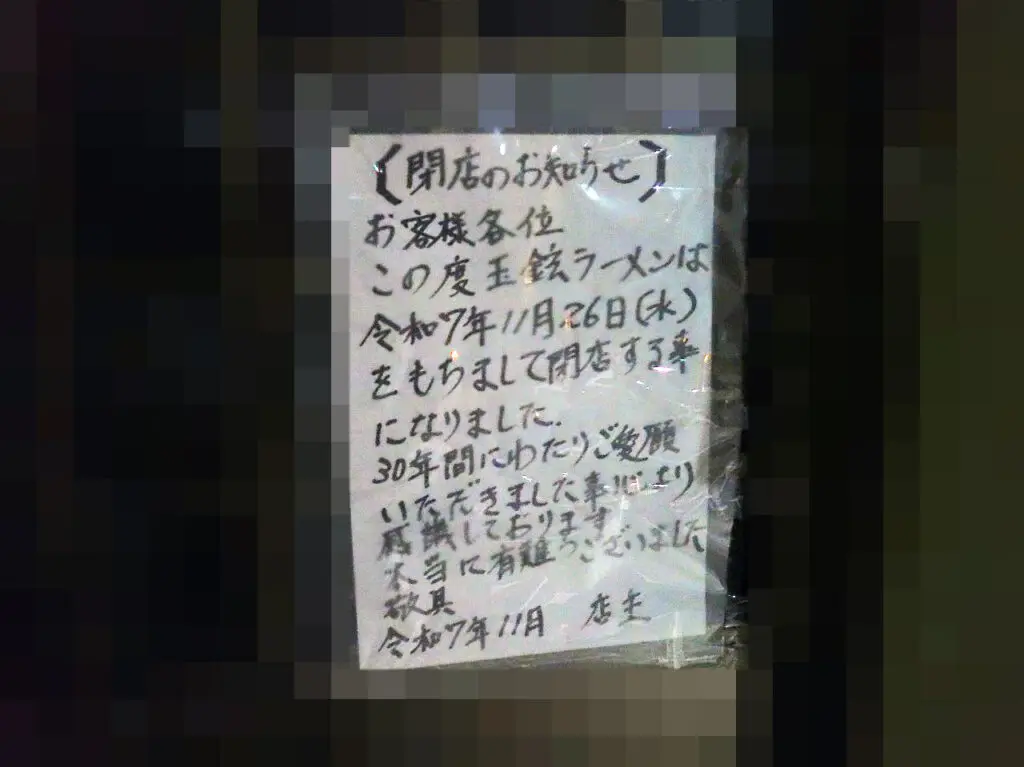 【閉店のお知らせ】
お客様各位
この度玉鉉ラーメンは
令和7年11月26日(水)
をもちまして閉店する事
になりました.
30年間にわたりご愛願
いただきました事心より
感謝しております
本当に有難うございました
敬具
令和7年11月 店主